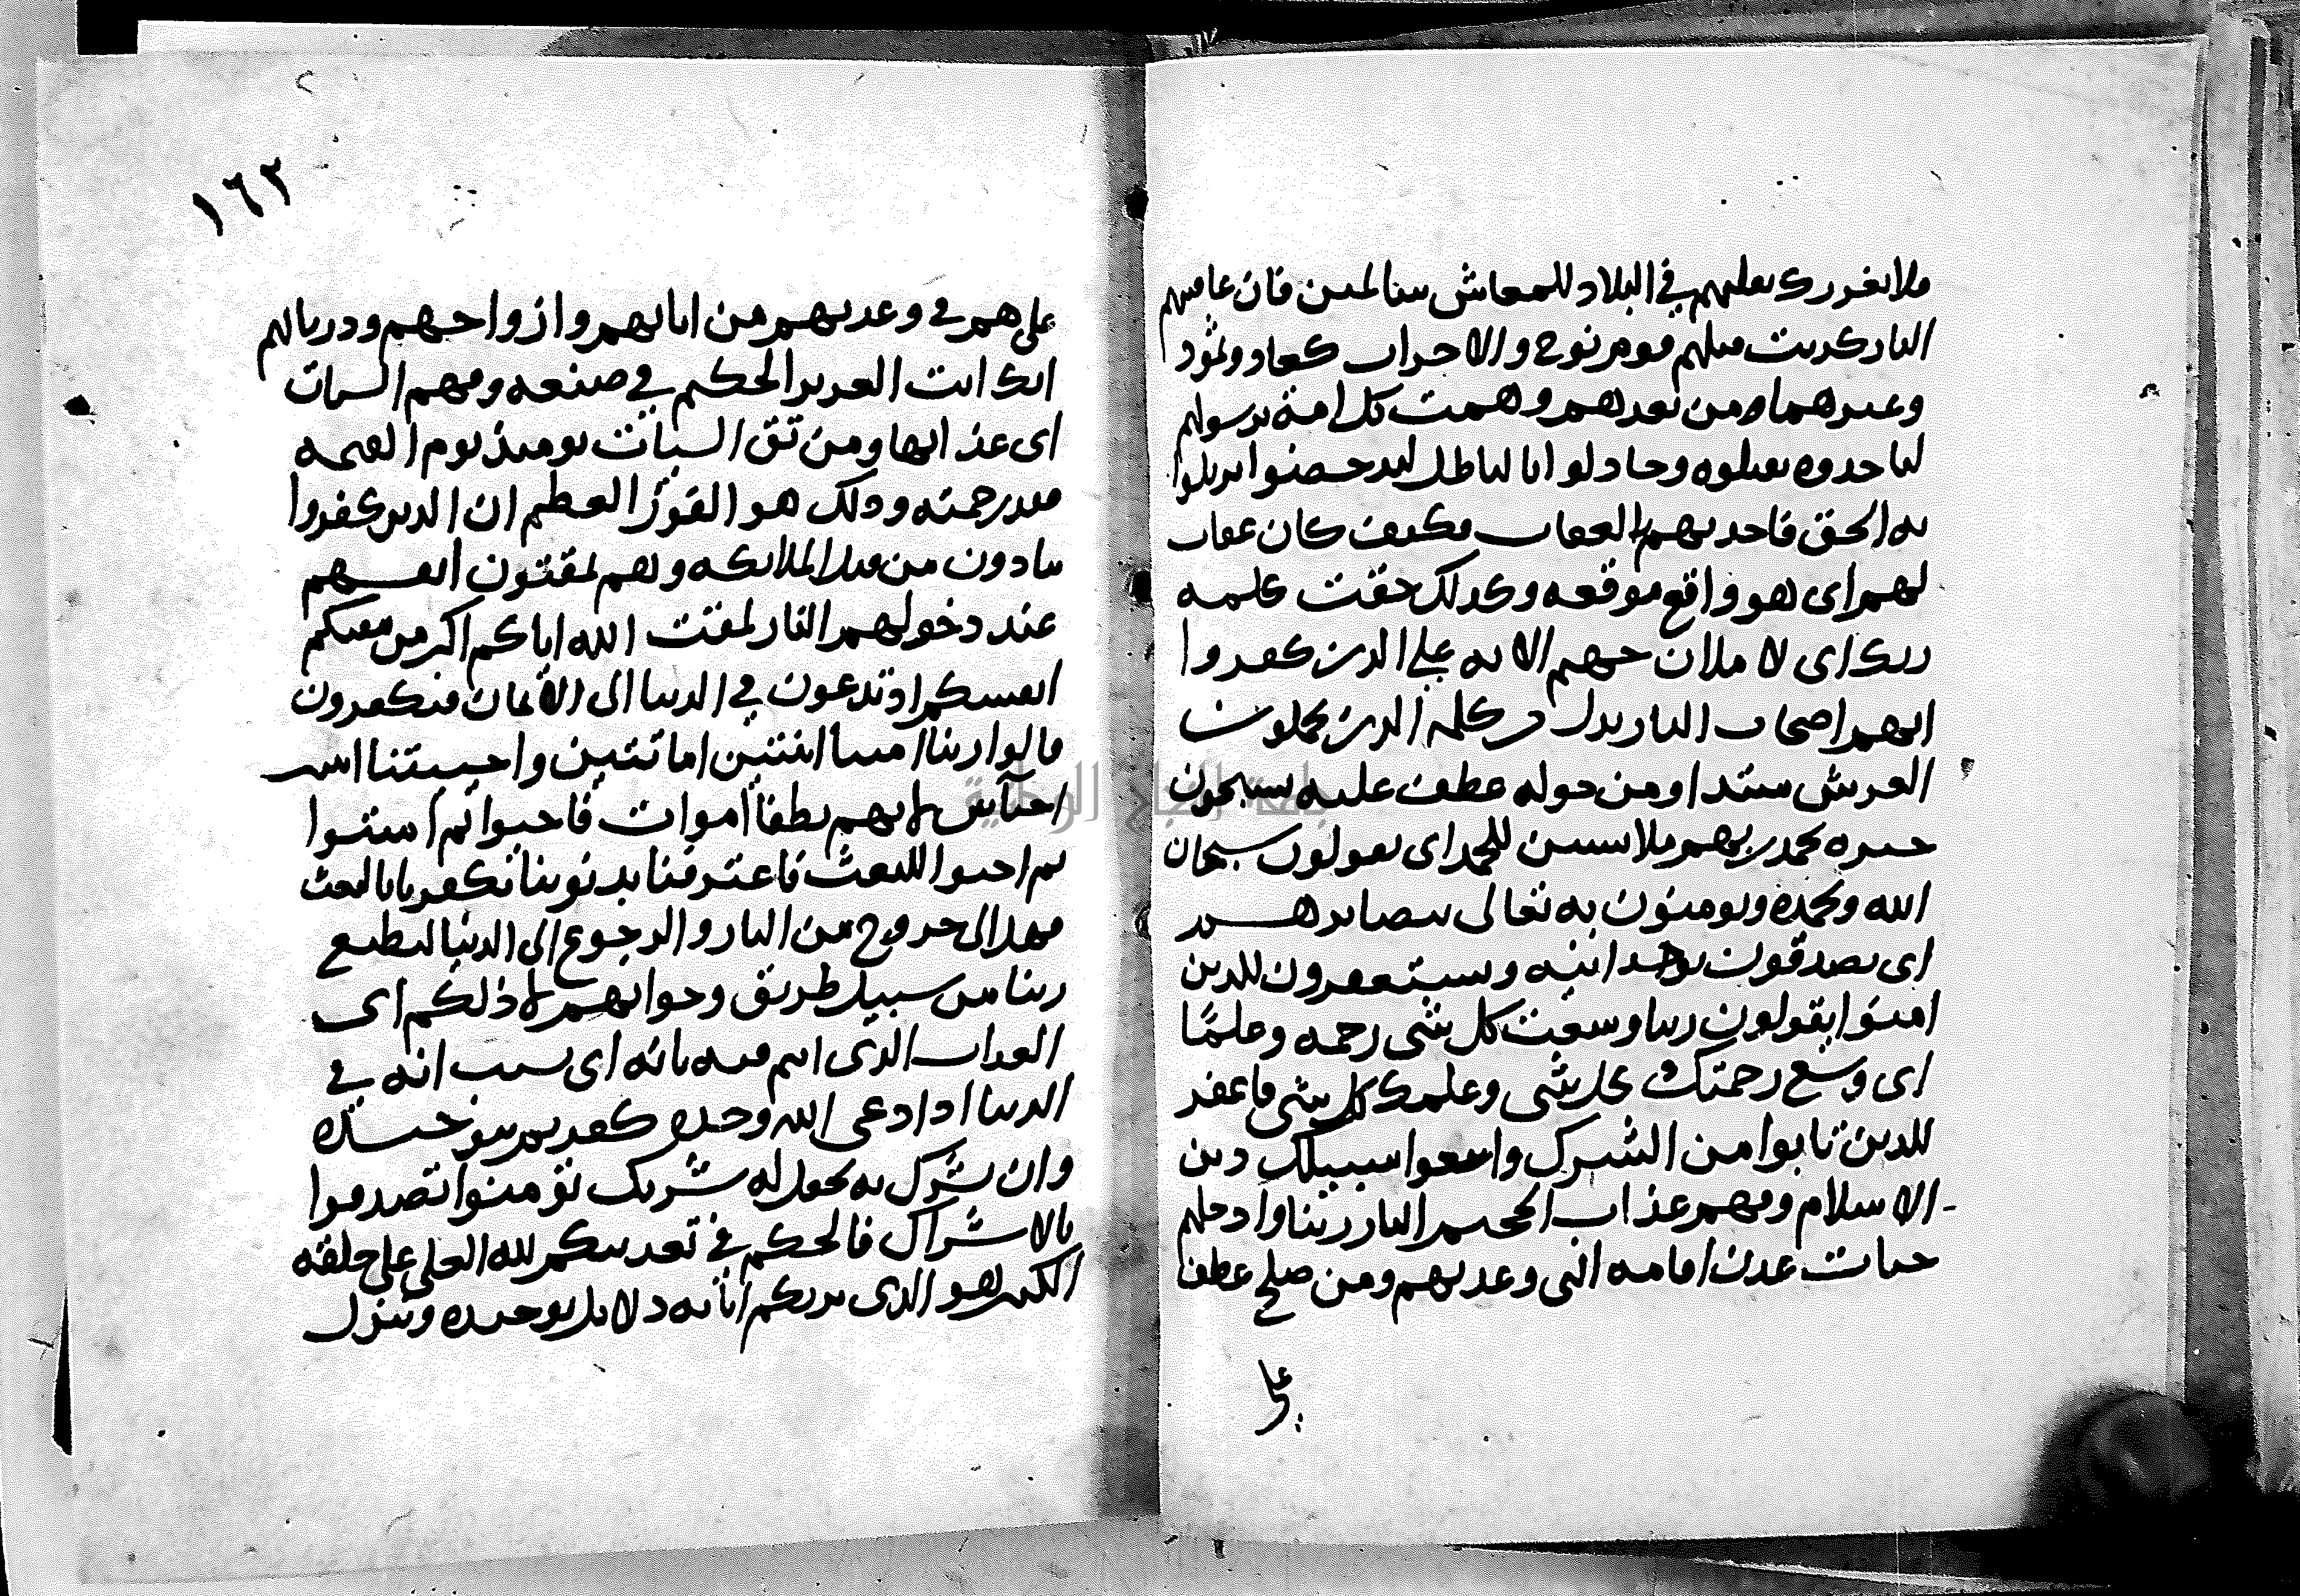 فلا يغررك تقلبهم في البلاد للمعاش سالمين فان عاقبتهم
النار كذبت قبلهم قوم نوح والاحزاب كعاد وثمود
وغيرهما من بعدهم وهمت كل امة برسولهم
لياخذوه يقتلوه وجادلوا بالباطل ليدحضوا يزيلوا
به الحق فاخذتهم بالعقاب فكيف كان عقاب
لهم اي هو واقع موقعه وكذلك حقت كلمة
ربك اي لاملان جهنم الاية على الذين كفروا
انهم اصحاب النار بدل من كلمة الذين يحملون
العرش مبتدا ومن حوله عطف عليه يسبحون
خبره بحمد ربهم ملابسين للحمد اي يقولون سبحان
الله وبحمده ويومنون به تعالى ببصايرهم
اي يصدقون بوحدانيته ويستغفرون للذين
امنوا يقولون ربنا وسعت كل شي رحمة وعلما
اي وسع رحمتك كل شي وعلمك كل شي فاغفر
للذين تابوا من الشرك واتبعوا سبيلك دين
الاسلام وقهم عذاب الجحيم النار ربنا وادخلهم
جنات عدن اقامة التي وعدتهم ومن صلح عطف
على
١٦٢
على هم في وعدتهم من ابائهم وازواجهم وذرياتهم
انك انت العزيز الحكيم في صنعه وقهم السيات
اي عذابها ومن تق السيات يوميذ يوم القيمة
فقد رحمته وذلك هو الفوز العظيم ان الذين كفروا
ينادون من قبل الملائكة وهم يمقتون انفسهم
عند دخولهم النار لمقت الله اياكم اكبر من مقتكم
انفسكم اذ تدعون في الدنيا الى الايمان فتكفرون
قالوا ربنا امتنا اثنتين اماتتين واحييتنا اثنتين
احياتين لانهم نطفا اموات فاحيوا ثم اميتوا
ثم احيوا للبعث فاعترفنا بذنوبنا بكفرنا بالبعث
فهل الى خروج من النار والرجوع الى الدنيا لنطيع
ربنا من سبيل طريق وجوابهم لا ذلكم اي
العذاب الذي انتم فيه بانه اي بسبب انه في
الدنيا اذا دعي الله وحده كفرتم بتوحيده
وان يشرك به يجعل له شريك تؤمنوا تصدقوا
بالاشراك فالحكم في تعذيبكم لله العلي على خلقه
الكبير هو الذي يريكم اياته دلايل توحيده وينزل
جامعة النجاح الوطنية